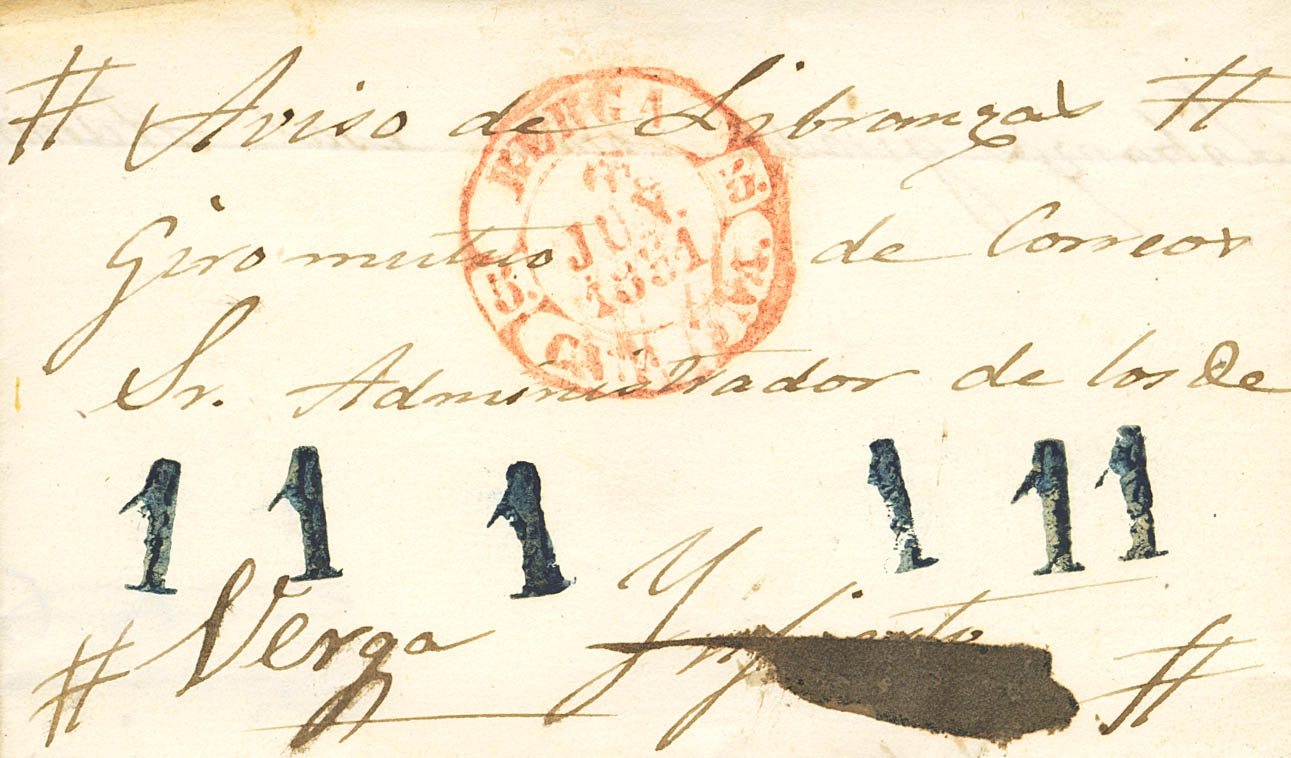 # Aviso de Libranzas #
Giro mutuo de Correos
Sr. Administrador de los De
1 1 1 1 1 1
# Verga #
5. 5.
JUN.
1851